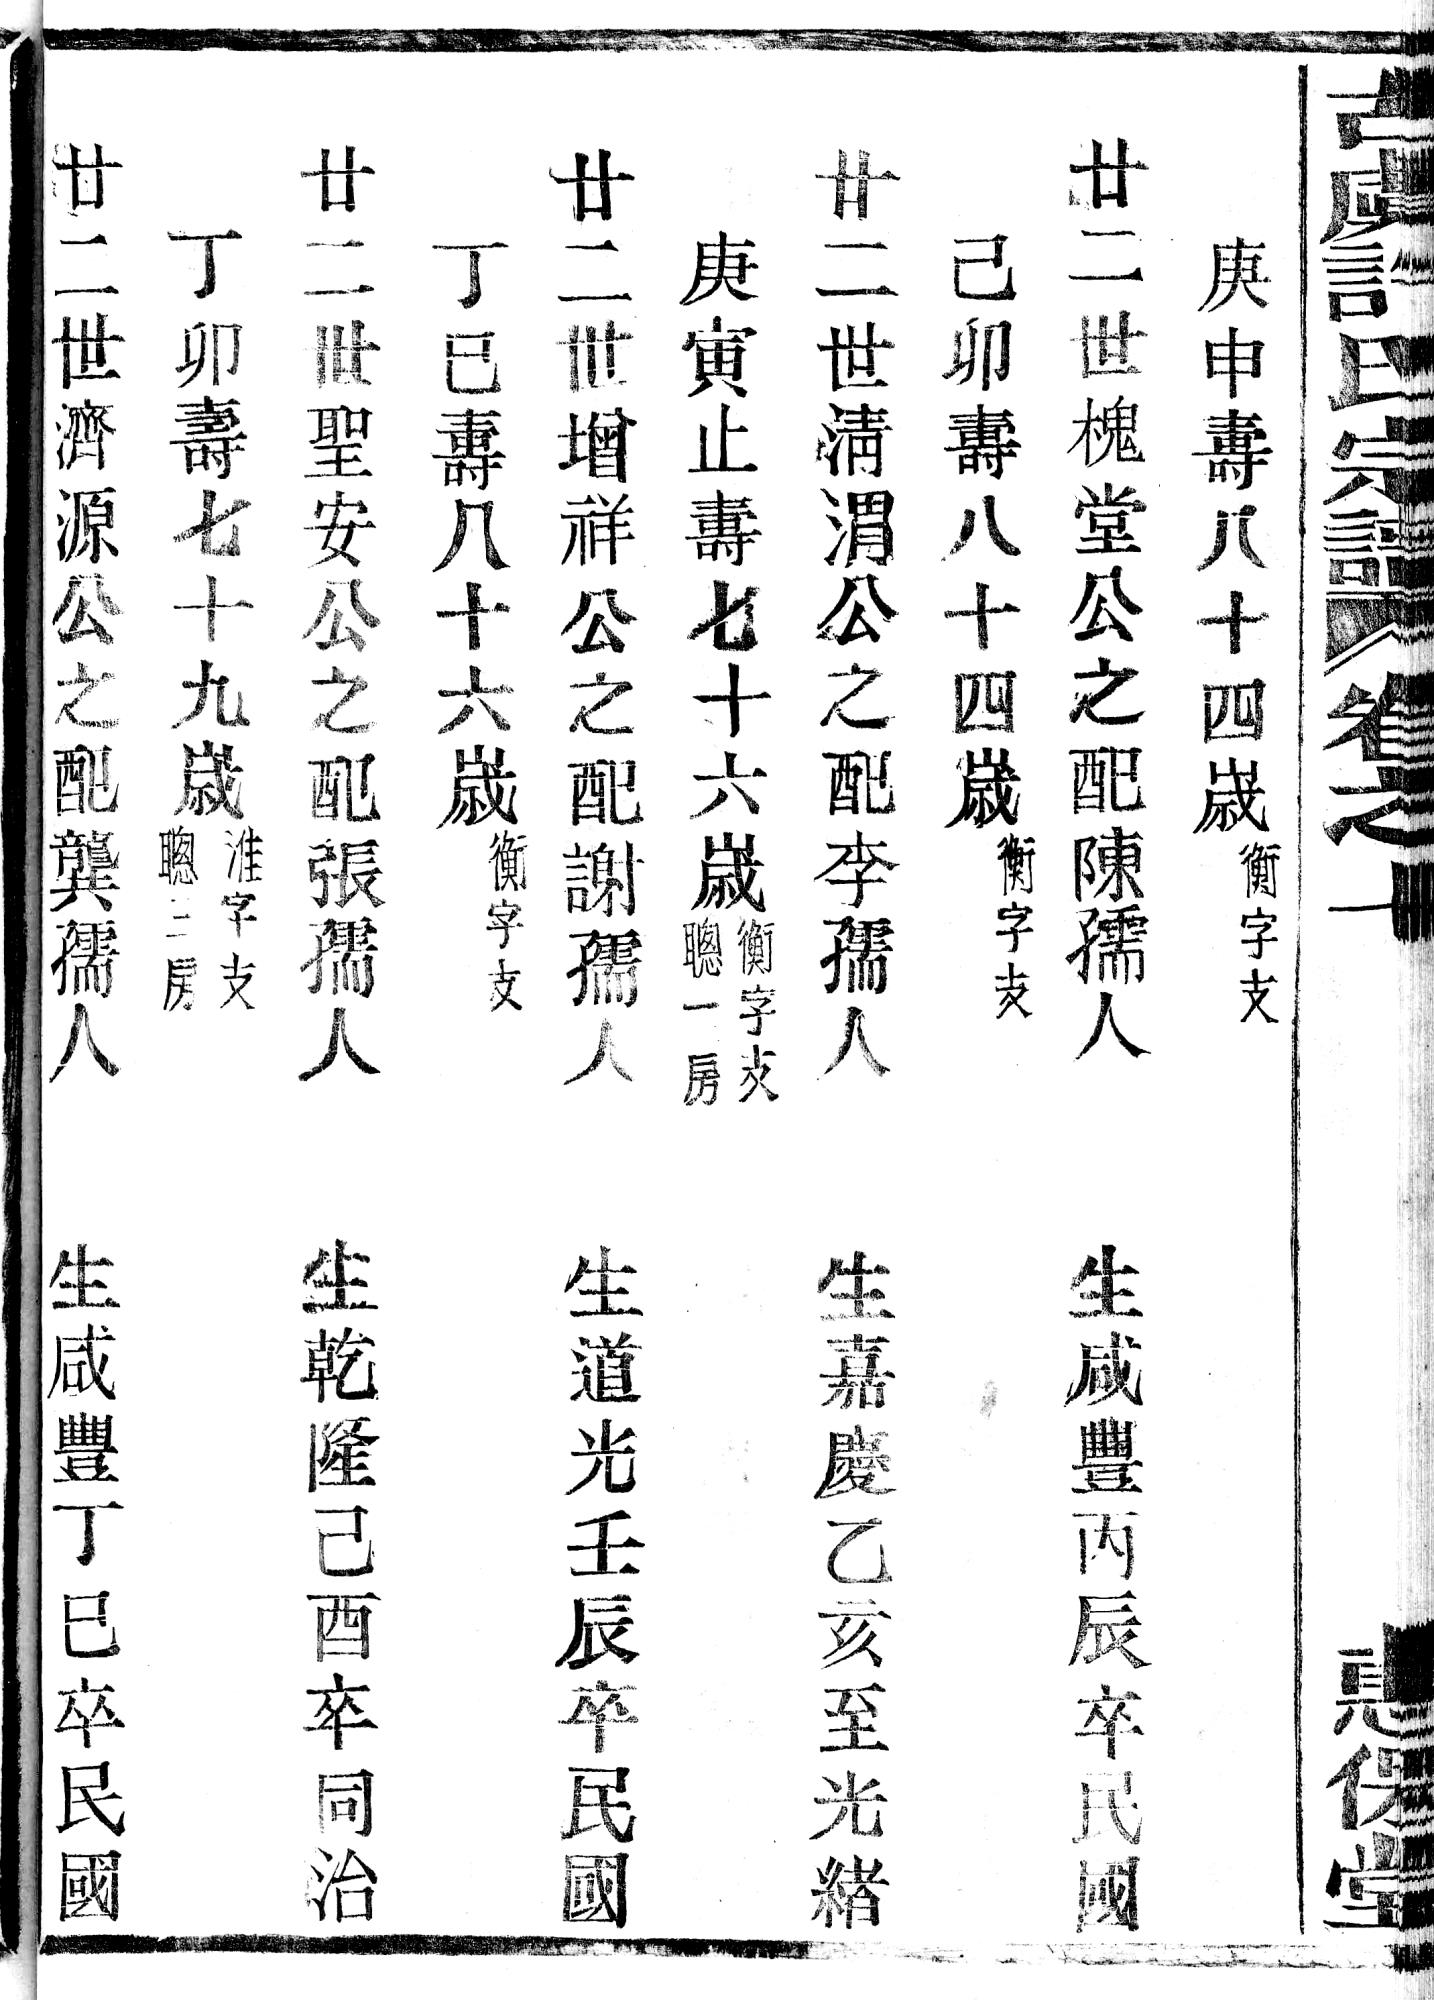 古虞許氏宗譜 卷之一 惠保堂
庚申壽八十四歲 衡字支
廿二世槐堂公之配陳孺人 生咸豐丙辰卒民國
己卯壽八十四歲 衡字支
廿二世淸渭公之配李孺人 生嘉慶乙亥至光緒
庚寅止壽七十六歲 衡字支 聰一房
廿二世增祥公之配謝孺人 生道光壬辰卒民國
丁巳壽八十六歲 衡字支
廿二世聖安公之配張孺人 生乾隆己酉卒同治
丁卯壽七十九歲 淮字支 聰三房
廿二世濟源公之配龔孺人 生咸豐丁巳卒民國